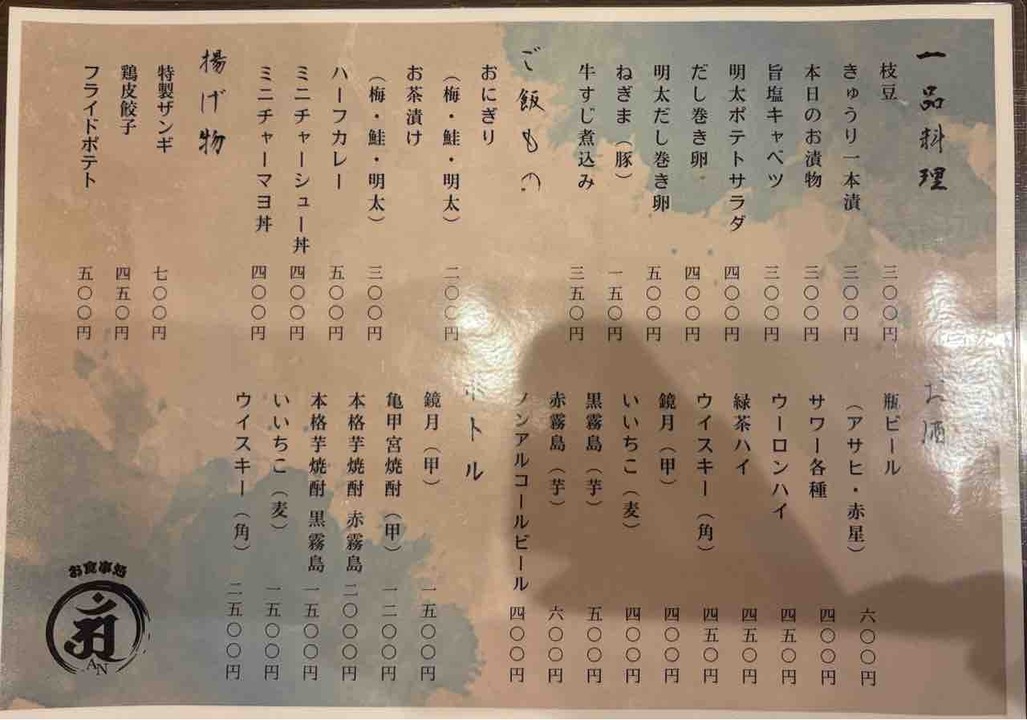 一品料理
枝豆 三〇〇円
きゅうり一本漬 三〇〇円
本日のお漬物 三〇〇円
旨塩キャベツ 三〇〇円
明太ポテトサラダ 四〇〇円
だし巻き卵 四〇〇円
明太だし巻き卵 五〇〇円
ねぎま（豚） 一五〇円
牛すじ煮込み 三五〇円
ご飯もの
おにぎり
（梅・鮭・明太） 二〇〇円
お茶漬け
（梅・鮭・明太） 三〇〇円
ハーフカレー 五〇〇円
ミニチャーシュー丼 四〇〇円
ミニチャーマヨ丼 四〇〇円
揚げ物
特製ザンギ 七〇〇円
鶏皮餃子 四五〇円
フライドポテト 五〇〇円
お酒
瓶ビール
（アサヒ・赤星） 六〇〇円
サワー各種 四〇〇円
ウーロンハイ 四五〇円
緑茶ハイ 四五〇円
ウイスキー（角） 四五〇円
鏡月（甲） 四〇〇円
いいちこ（麦） 四〇〇円
黒霧島（芋） 五〇〇円
赤霧島（芋） 六〇〇円
ノンアルコールビール 四〇〇円
ボトル
鏡月（甲） 一五〇〇円
亀甲宮焼酎（甲） 一二〇〇円
本格芋焼酎 赤霧島 二〇〇〇円
本格芋焼酎 黒霧島 一五〇〇円
いいちこ（麦） 一五〇〇円
ウイスキー（角） 二五〇〇円
お食事処
AN